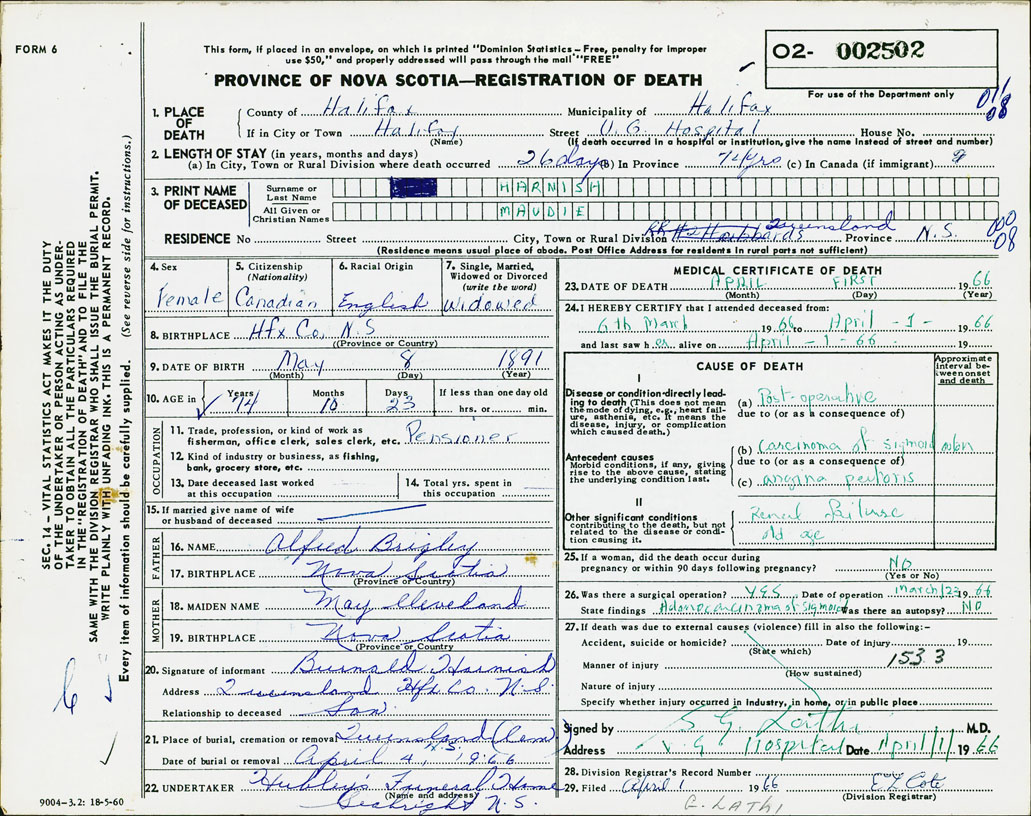 FORM 6
This form, if placed in an envelope, on which is printed "Dominion Statistics – Free, penalty for improper
use $50," and properly addressed will pass through the mail "FREE"
PROVINCE OF NOVA SCOTIA—REGISTRATION OF DEATH
02- 002502
For use of the Department only
1. PLACE OF DEATH
County of Halifax Municipality of Halifax
If in City or Town Halifax Street V. G. Hospital House No.
(Name) (If death occurred in a hospital or institution, give the name instead of street and number)
01/08
2. LENGTH OF STAY (in years, months and days)
(a) In City, Town or Rural Division where death occurred 26 days (b) In Province 74 yrs (c) In Canada (if immigrant)
3. PRINT NAME OF DECEASED
Surname or Last Name HARNISH
All Given or Christian Names MAUDIE
RESIDENCE No Street City, Town or Rural Division RR #2 Hubbards Queensland Province N.S.
000
08
(Residence means usual place of abode. Post Office Address for residents in rural parts not sufficient)
4. Sex Female
5. Citizenship (Nationality) Canadian
6. Racial Origin English
7. Single, Married, Widowed or Divorced (write the word) Widowed
8. BIRTHPLACE Hfx Co, N.S
(Province or Country)
9. DATE OF BIRTH May 8 1891
(Month) (Day) (Year)
10. AGE in Years 74 Months 10 Days 23 If less than one day old hrs. or min.
OCCUPATION
11. Trade, profession, or kind of work as fisherman, office clerk, sales clerk, etc. Pensioner
12. Kind of industry or business, as fishing, bank, grocery store, etc.
13. Date deceased last worked at this occupation
14. Total yrs. spent in this occupation
15. If married give name of wife or husband of deceased
FATHER
16. NAME Alfred Brigley
17. BIRTHPLACE Nova Scotia
(Province or Country)
MOTHER
18. MAIDEN NAME May Cleveland
19. BIRTHPLACE Nova Scotia
(Province or Country)
20. Signature of informant Harnish
Address Queensland Hfx Co. N.S.
Relationship to deceased Son
21. Place of burial, cremation or removal Queensland (Cem) N.S.
Date of burial or removal April 4, 1966
22. UNDERTAKER Hubley's Funeral Home
(Name and address)
N.S.
MEDICAL CERTIFICATE OF DEATH
23. DATE OF DEATH APRIL FIRST 1966
(Month) (Day) (Year)
24. I HEREBY CERTIFY that I attended deceased from:
6th March 1966 to April -1- 1966
and last saw her alive on April -1- 66 19
CAUSE OF DEATH
Approximate interval between onset and death
I
Disease or condition directly leading to death (This does not mean the mode of dying, e.g., heart failure, asthenia, etc. It means the disease, injury, or complication which caused death.)
(a) Post-operative
due to (or as a consequence of)
Antecedent causes
Morbid conditions, if any, giving rise to the above cause, stating the underlying condition last.
(b) carcinoma of sigmoid colon
due to (or as a consequence of)
(c) angina pectoris
II
Other significant conditions contributing to the death, but not related to the disease or condition causing it.
Renal Failure
old age
25. If a woman, did the death occur during pregnancy or within 90 days following pregnancy? NO
(Yes or No)
26. Was there a surgical operation? YES Date of operation March/23 1966
State findings Adenocarcinoma of Sigmoid Was there an autopsy? NO
27. If death was due to external causes (violence) fill in also the following:–
Accident, suicide or homicide? Date of injury 19
(State which)
Manner of injury 153 3
(How sustained)
Nature of injury
Specify whether injury occurred in Industry, in home, or in public place
Signed by S G Lathi M.D.
Address V. G Hospital Date April/1/ 1966
28. Division Registrar's Record Number
29. Filed April 1 1966 E L Cote
(Division Registrar)
G. LATHI
9004-3.2: 18-5-60
SEC. 14 – VITAL STATISTICS ACT MAKES IT THE DUTY
OF THE UNDERTAKER OR PERSON ACTING AS UNDER-
TAKER TO OBTAIN ALL THE PARTICULARS REQUIRED
IN THE "REGISTRATION OF DEATH" AND TO FILE THE
SAME WITH THE DIVISION REGISTRAR WHO SHALL ISSUE THE BURIAL PERMIT.
WRITE PLAINLY WITH UNFADING INK. THIS IS A PERMANENT RECORD.
Every item of information should be carefully supplied. (See reverse side for instructions.)